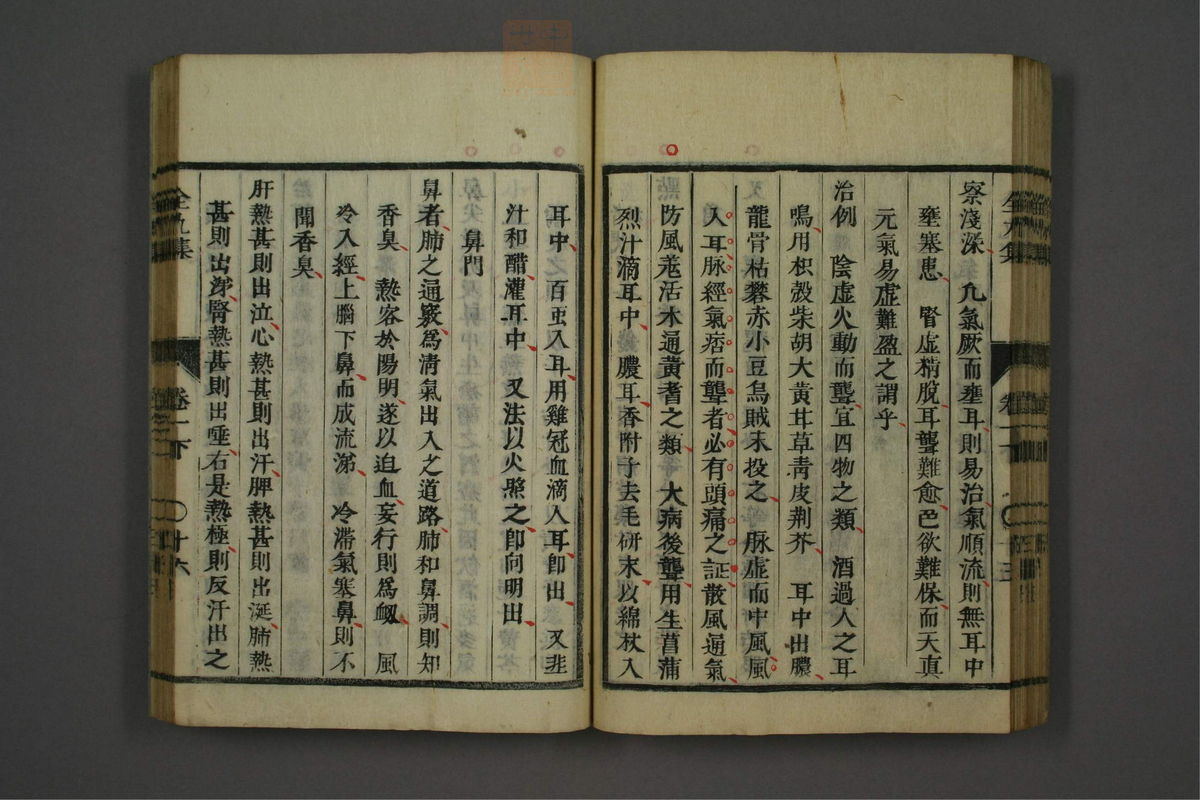 察淺深凢氣厥而壅耳則易治氣順流則無耳中
壅塞患 腎虛精脫耳聾難愈色欲難保而天真
元氣易虛難盈之謂乎
治例 陰虛火動而聾宜四物之類 酒過人之耳
鳴用枳殼柴胡大黃甘草靑皮荆芥 耳中出膿
龍骨枯礬赤小豆烏賊末投之 脉虛而中風風
入耳脉經氣痞而聾者必有頭痛之証散風通氣
防風羗活木通黃耆之類 大病後聾用生菖蒲
烈汁滴耳中 膿耳香附子去毛研末以綿杖入
耳中 百虫入耳用雞冠血滴入耳卽出 又韭
汁和醋灌耳中 又法以火熙之卽向明出
鼻門
鼻者肺之通竅爲淸氣出入之道路肺和鼻調則知
香臭 熱客於陽明遂以迫血妄行則爲衂 風
冷入經上腦下鼻而成流涕 冷滯氣塞鼻則不
聞香臭
肝熱甚則出泣心熱甚則出汗脾熱甚則出涎肺熱
甚則出涕腎熱甚則出唾右是熱極則反汗出之
全九集
卷一下
十六